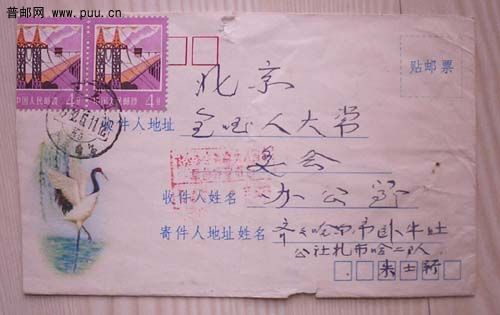 普邮网 www.puu.cn
中国人民邮政 4分
中国人民邮政 4分
贴邮票
北京
收件人地址 全国人大常
委会
收件人姓名 办公厅
寄件人地址姓名 齐齐哈尔市卧牛吐
公社扎布哈二队